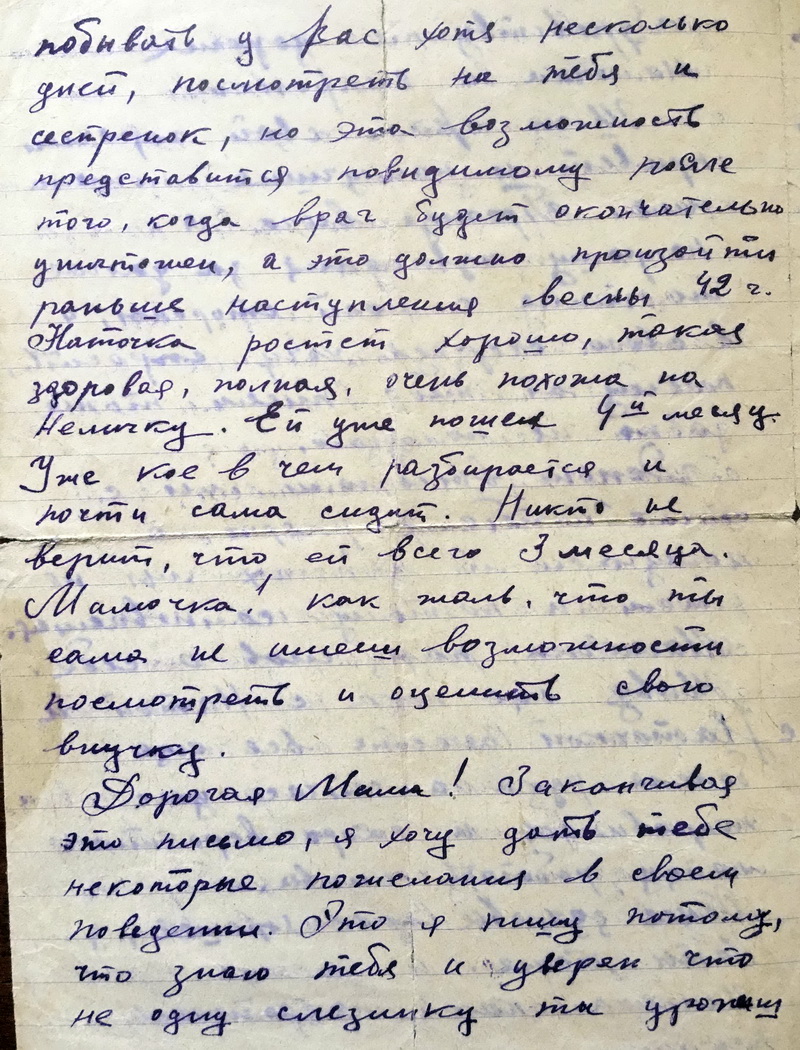 побывать у Вас хотя несколько
дней, посмотреть на тебя и
сестренок, но эта возможность
представится повидимому после
того, когда враг будет окончательно
уничтожен, а это должно произойти
раньше наступления весны 42 г.
Наточка ростет хорошо, такая
здоровая, полная, очень похожа на
Неличку. Ей уже пошел 4й месяц.
Уже кое в чем разбирается и
почти сама сидит. Никто не
верит, что ей всего 3 месяца.
Мамочка! как жаль, что ты
сама не имееш возможности
посмотреть и оценить свою
внучку.
Дорогая Мама! Заканчивая
это письмо, я хочу дать тебе
некоторые пожелания в своем
поведении. Это я пишу потому,
что знаю тебя и уверен что
не одну слезинку ты урониш